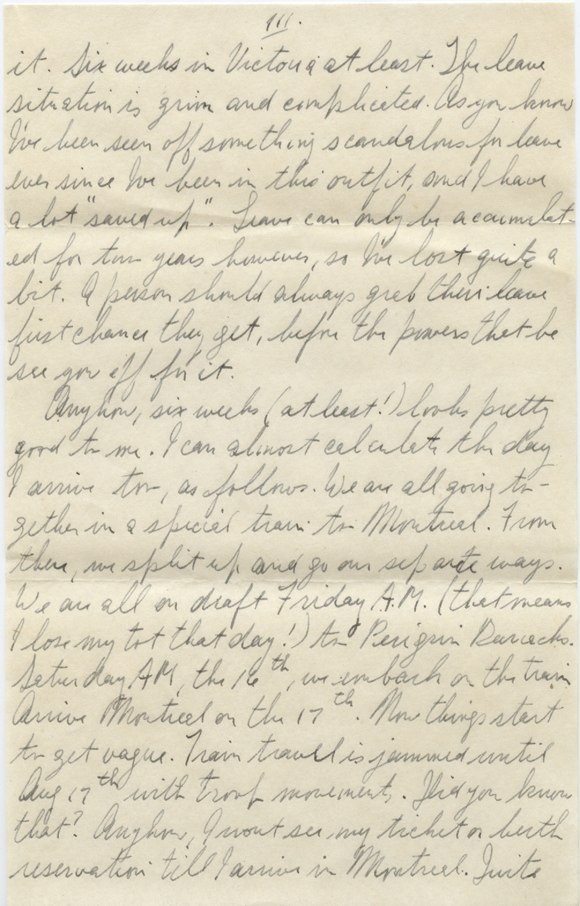 III.
it. Six weeks in Victoria at least. The leave
situation is grim and complicated. As you know
I've been seen off something scandalous for leave
ever since I've been in this outfit, and I have
a lot "saved up". Leave can only be accumulat-
ed for two years however, so I've lost quite a
bit. A person should always grab their leave
first chance they get, before the powers that be
see you off for it.
Anyhow, six weeks (at least!) looks pretty
good to me. I can almost calculate the day
I arrive too, as follows. We are all going to-
gether in a special train to Montreal. From
there, we split up and go our separate ways.
We are all on draft Friday A.M. (that means
I lose my tot that day!) to Peregrin Barracks.
Saturday AM, the 16th, we embark on the train
Arrive Montreal on the 17th. Now things start
to get vague. Train travel is jammed until
Aug 17th with troop movements. Did you know
that? Anyhow, I wont see my ticket or berth
reservation till I arrive in Montreal. Quite